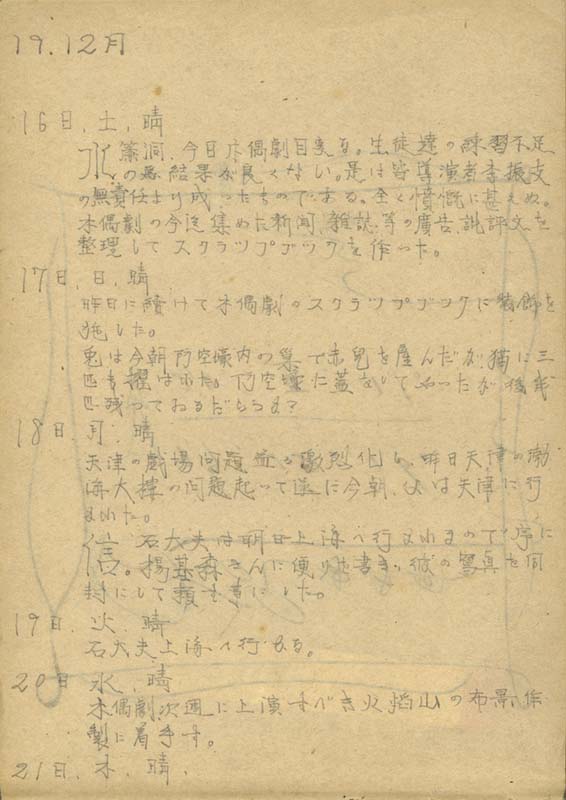 19.12月
16日、土、晴
水簾洞、今日木偶劇目変る。生徒達の練習不足
の為結果が良くない。是は皆導演者李振支
の無責任より成ったものである。全く憤慨に甚えぬ。
木偶劇の今迄集めた新聞、雑誌、等の廣告、批評文を
整理してスクラツプブツクを作った。
17日、日、晴
昨日に續けて木偶劇のスクラツプブツクに装飾を
施した。
兎は今朝防空壕内の巣で赤児を産んだが猫に三
匹も攫はれた。防空壕に蓋をしてやったが後
匹残っておるだらうか?
18日、月、晴
天津の戯場問題並も激烈化し、昨日天津の渤
海大樓の問題起って遂に今朝、父は天津に行
かれた。
信。石大夫は明日上海へ行かれますので序に
楊基森さんに便りを書き、彼の写真を同
封にして頼む事にした。
19日 火、晴
石大夫上海へ行かる。
20日 水、晴
木偶劇次週に上演すべき火焰山の布景作
製に着手す。
21日、木、晴、